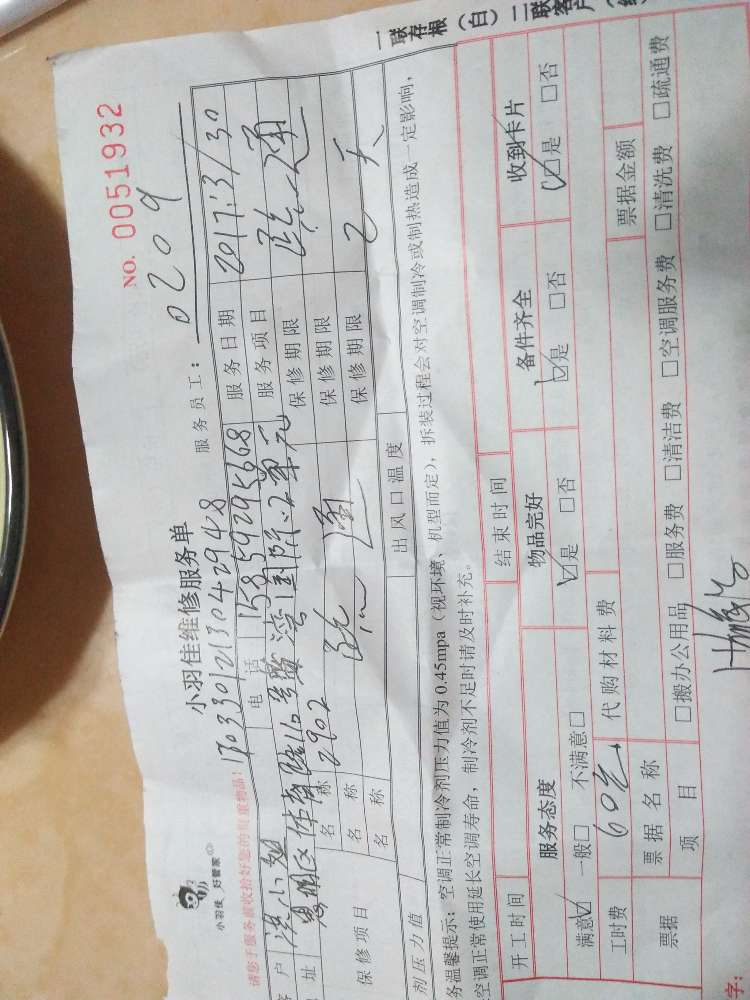 一联存根(白)二联客户(红
NO. 0051932
小羽佳 好管家
小羽佳维修服务单
服务员工: 0209
请您于服务前收拾好您的贵重物品!
17033012130429428
客户 洪小姐 电话 15859295668 服务日期 2017.3/30
地址 思明区体育路16号 湾国际 2单元 2902 服务项目 疏通
保修项目 名称 保修期限
名称 疏通 保修期限
名称 保修期限 2天
剂压力值 出风口温度
务温馨提示:空调正常制冷剂压力值为0.45mpa(视环境、机型而定),拆装过程会对空调制冷或制热造成一定影响,
空调正常使用延长空调寿命,制冷剂不足时请及时补充。
开工时间 结束时间
服务态度 物品完好 备件齐全 收到卡片
满意☑ 一般□ 不满意□ ☑是 □否 ☑是 □否 ☑是 □否
工时费 60元 代购材料费
票据 票据名称 票据金额
项目 □搬办公用品 □服务费 □清洁费 □空调服务费 □清洗费 □疏通费
字: